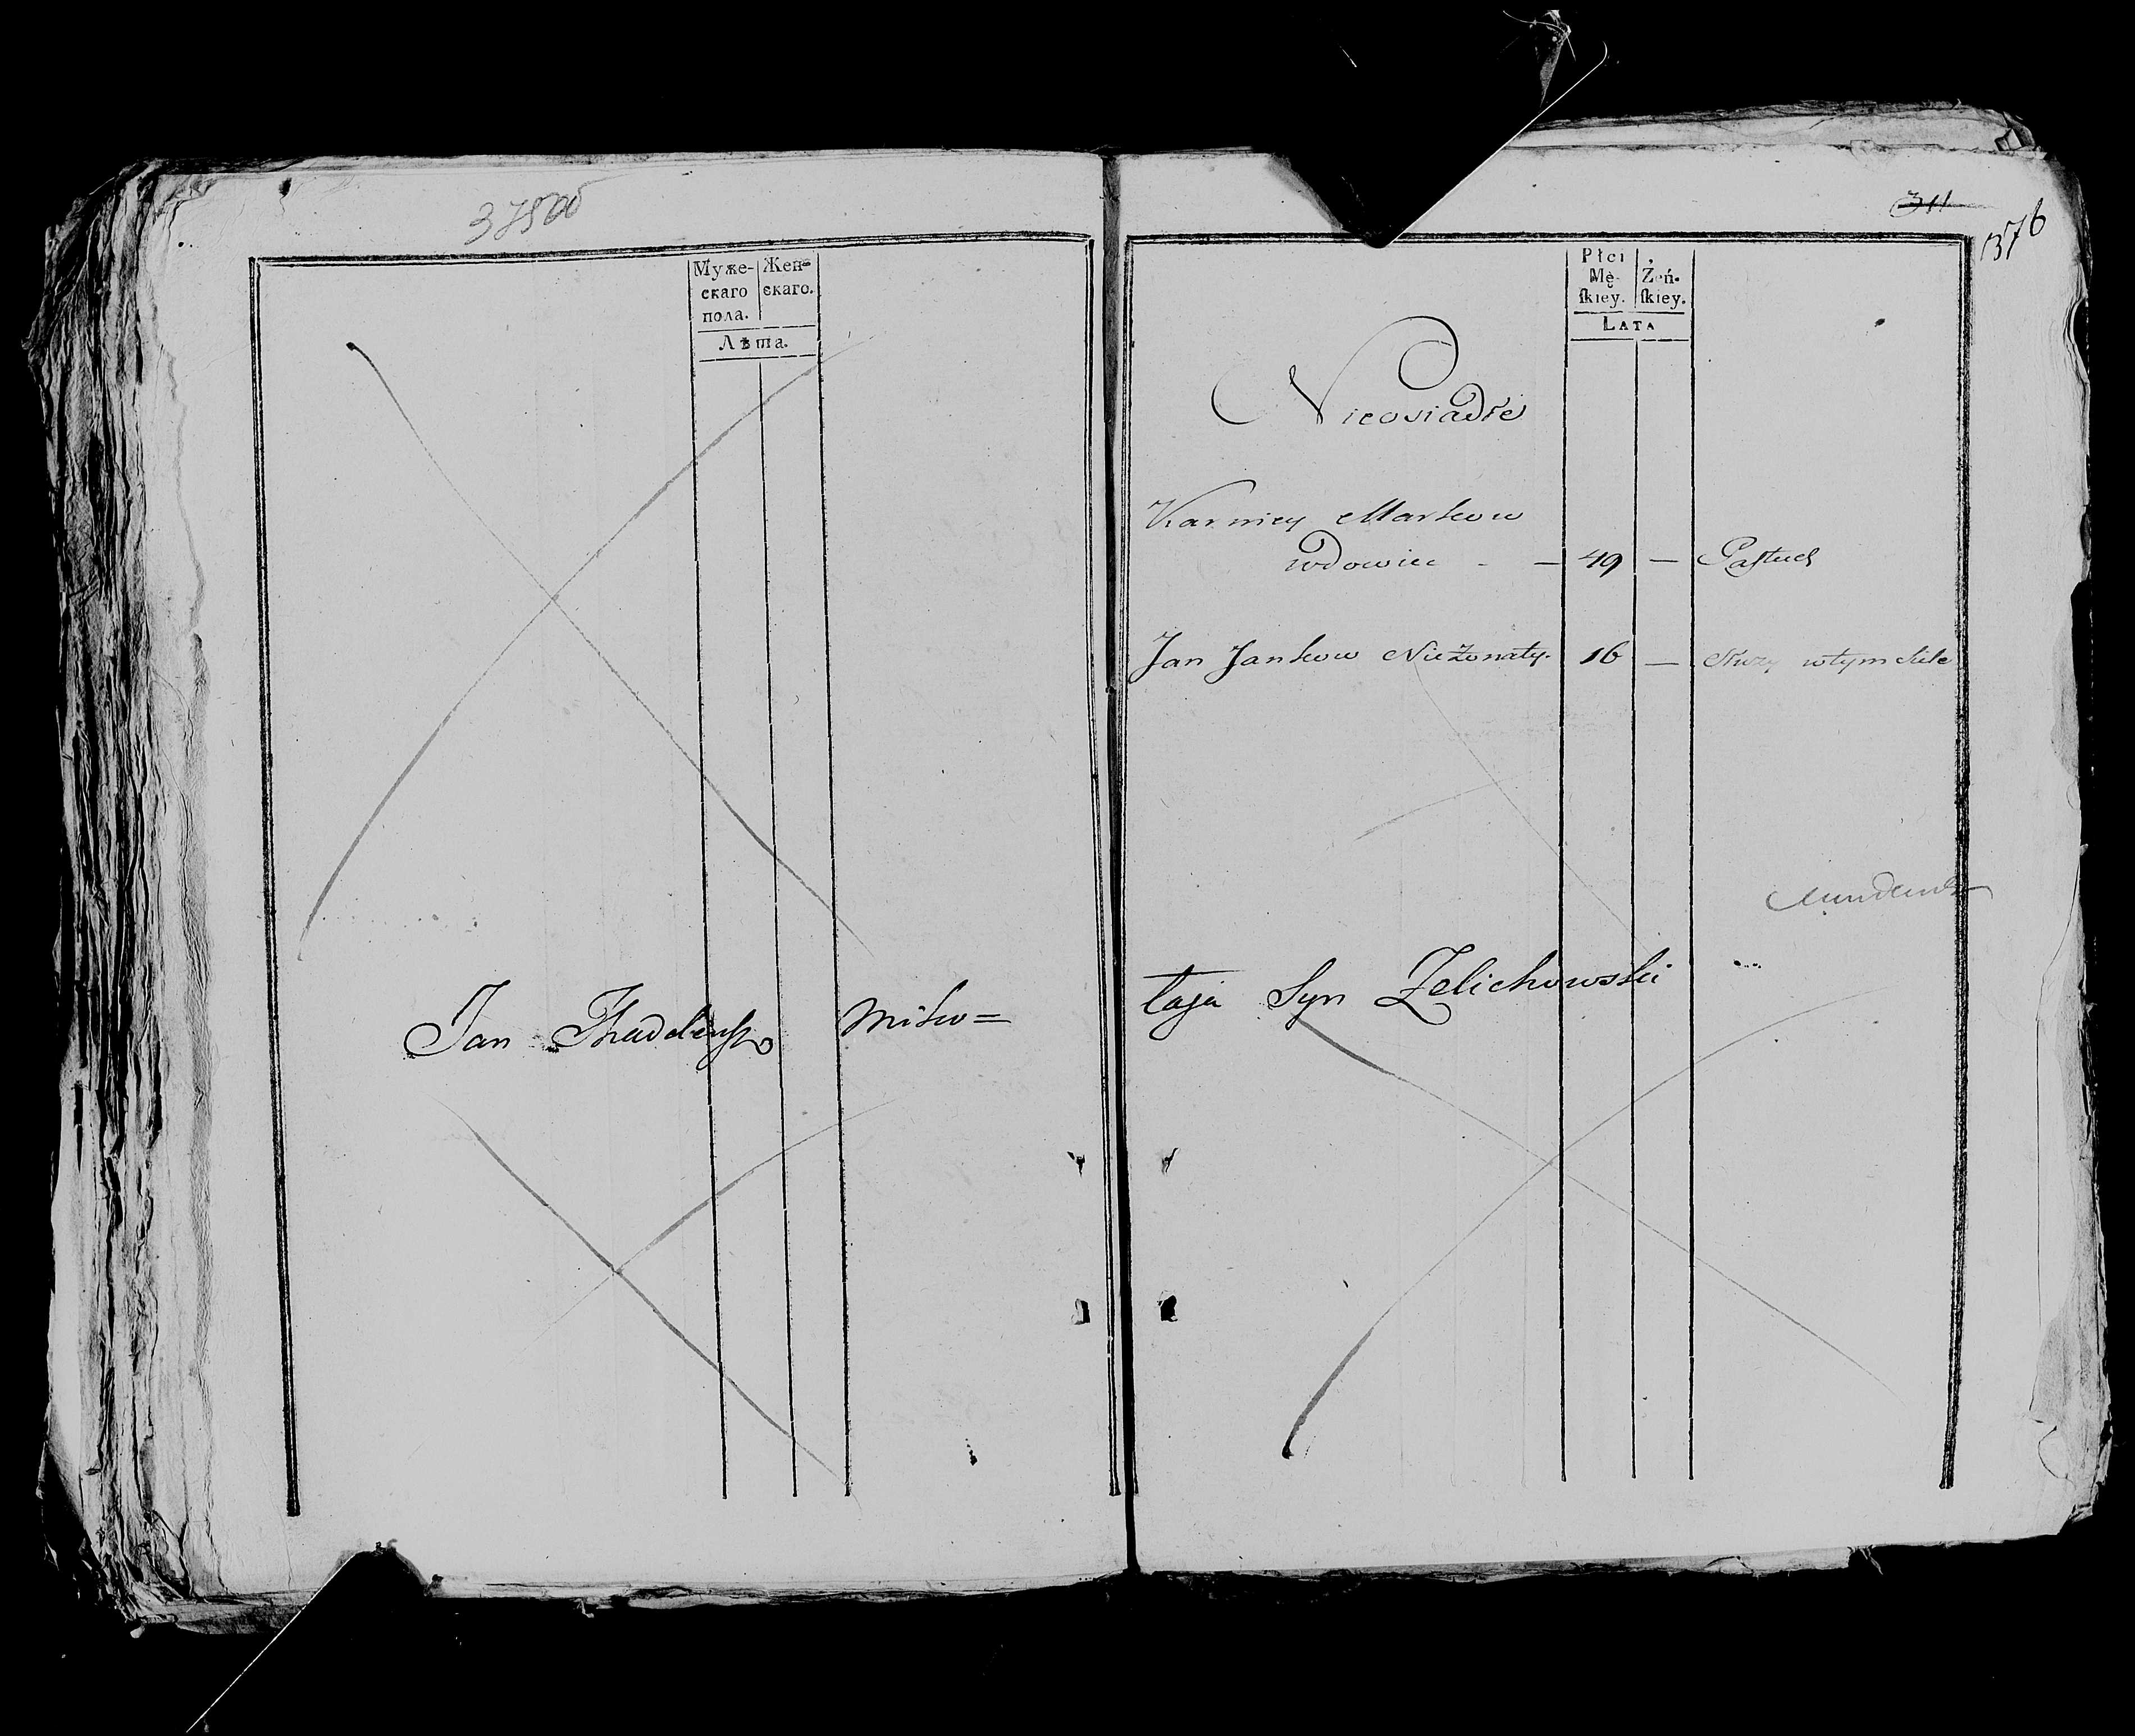 375об
Муже-
скаго
пола.
Жен-
скаго.
Лѣта.
Jan Thadeusz Miko=
311
376
Płci
Mę-
ſkiey.
Żeń-
ſkiey.
LATA
Nieosiadłe
Markow
wdowiec - — 49 — Paſtuch
Jan Jankow Nieżonaty. 16 — Służy w tym
łaja Syn Zelichowski